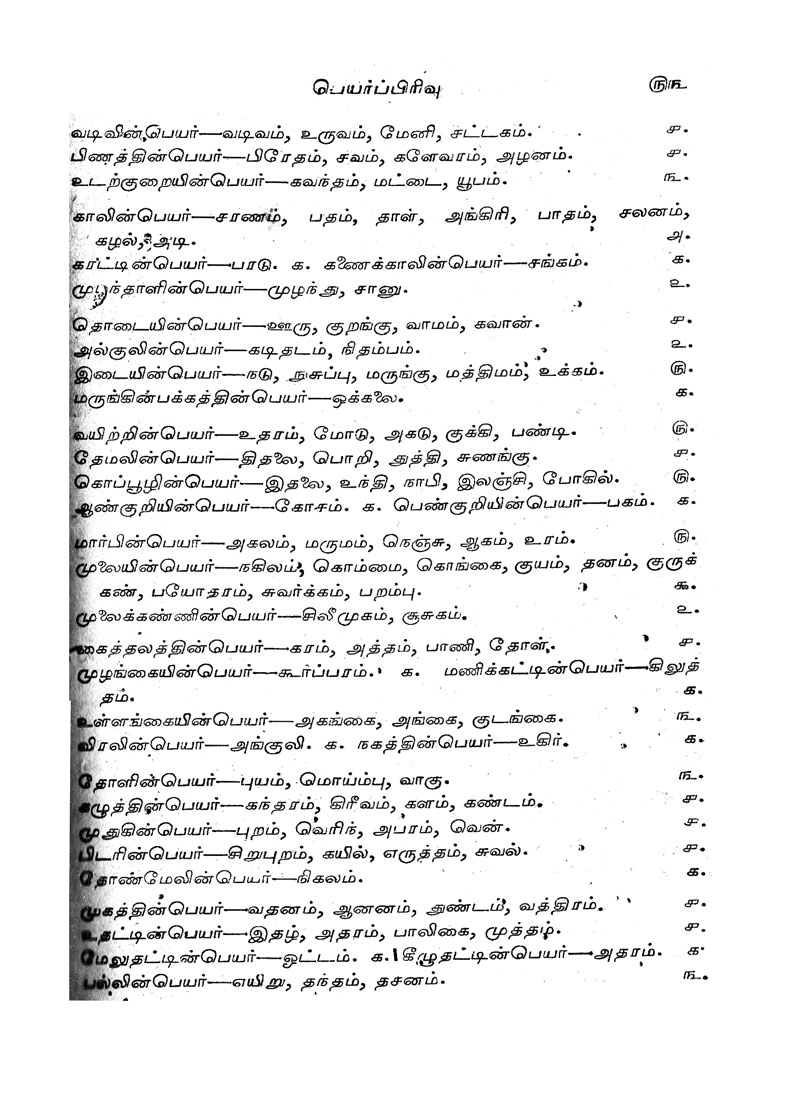 பெயர்ப்பிரிவு ௫௩
வடிவின்பெயர்—வடிவம், உருவம், மேனி, சட்டகம். ௪.
பிணத்தின்பெயர்—பிரேதம், சவம், களேவரம், அழனம். ௪.
உடற்குறையின்பெயர்—கவந்தம், மட்டை, யூபம். ௩.
காலின்பெயர்—சரணம், பதம், தாள், அங்கிரி, பாதம், சலனம்,
கழல், அடி. ௮.
கரட்டின்பெயர்—பரடு. ௧. கணைக்காலின்பெயர்—சங்கம். ௧.
முழந்தாளின்பெயர்—முழந்து, சானு. ௨.
தொடையின்பெயர்—ஊரு, குறங்கு, வாமம், கவான். ௪.
அல்குலின்பெயர்—கடிதடம், நிதம்பம். ௨.
இடையின்பெயர்—நடு, நுசுப்பு, மருங்கு, மத்திமம், உக்கம். ௫.
மருங்கின்பக்கத்தின்பெயர்—ஒக்கலை. ௧.
வயிற்றின்பெயர்—உதரம், மோடு, அகடு, குக்கி, பண்டி. ௫.
தேமலின்பெயர்—திதலை, பொறி, துத்தி, சுணங்கு. ௪.
கொப்பூழின்பெயர்—இதலை, உந்தி, நாபி, இலஞ்சி, போகில். ௫.
ஆண்குறியின்பெயர்—கோசம். ௧. பெண்குறியின்பெயர்—பகம். ௧.
மார்பின்பெயர்—அகலம், மருமம், நெஞ்சு, ஆகம், உரம். ௫.
முலையின்பெயர்—நகிலம், கொம்மை, கொங்கை, குயம், தனம், குருக்
கண், பயோதரம், சுவர்க்கம், பறம்பு. ௯.
முலைக்கண்ணின்பெயர்—சிலீமுகம், சூசுகம். ௨.
கைத்தலத்தின்பெயர்—கரம், அத்தம், பாணி, தோள். ௪.
முழங்கையின்பெயர்—கூர்ப்பரம். ௧. மணிக்கட்டின்பெயர்—கிலுத்
தம். ௧.
உள்ளங்கையின்பெயர்—அகங்கை, அங்கை, குடங்கை. ௩.
விரலின்பெயர்—அங்குலி. ௧. நகத்தின்பெயர்—உகிர். ௧.
தோளின்பெயர்—புயம், மொய்ம்பு, வாகு. ௩.
கழுத்தின்பெயர்—கந்தரம், கிரீவம், களம், கண்டம். ௪.
முதுகின்பெயர்—புறம், வெரிந், அபரம், வென். ௪.
பிடரின்பெயர்—சிறுபுறம், கயில், எருத்தம், சுவல். ௪.
தோண்மேலின்பெயர்—நிகலம். ௧.
முகத்தின்பெயர்—வதனம், ஆனனம், துண்டம், வத்திரம். ௪.
உதட்டின்பெயர்—இதழ், அதரம், பாலிகை, முத்தழ். ௪.
மேலுதட்டின்பெயர்—ஒட்டம். ௧. கீழுதட்டின்பெயர்—அதரம். ௧
பல்லின்பெயர்—எயிறு, தந்தம், தசனம். ௩.